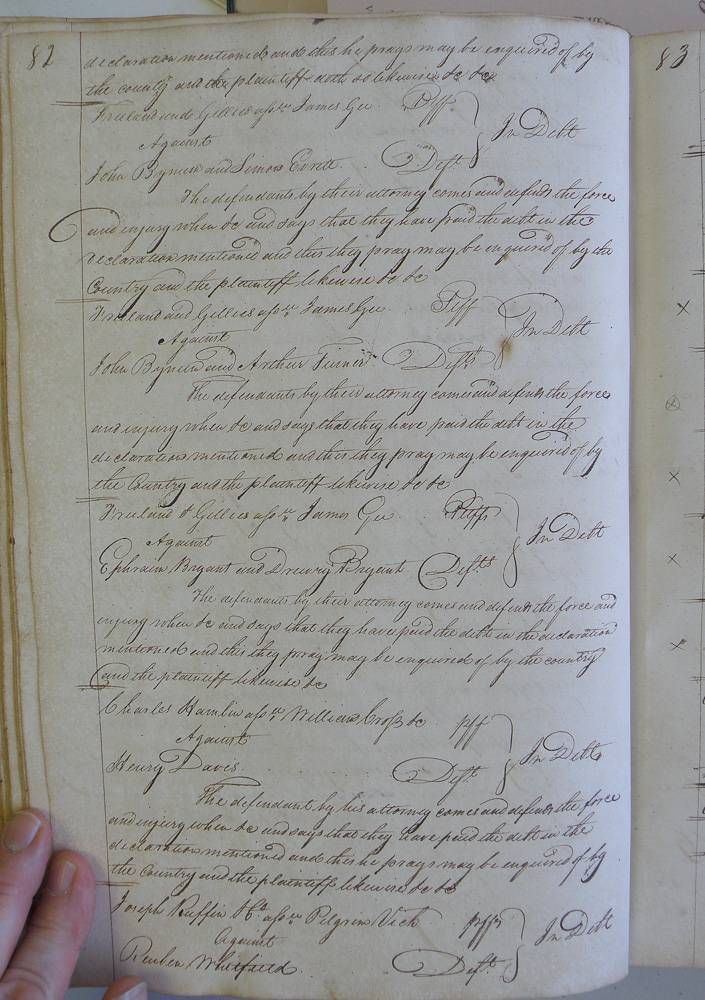 82
declaration mentioned and this he prays may be enquired of by
the county and the plaintiff doth so likewise &c &c
Freeland and Gillies asse. James Gee Plff
Against In Debt
John Bynum and Simon Everett Deft.
The defendants by their attorney comes and defends the force
and injury when &c and says that they have paid the debt in the
declaration mentioned and this they pray may be enquired of by the
Country and the plaintiff likewise &c &c
Freeland and Gillies asse. James Gee Plff
Against In Debt
John Bynum and Arthur Turner Defts
The defendants by their attorney comes and defends the force
and injury when &c and says that they have paid the debt in the
declaration mentioned and this they pray may be enquired of by
the Country and the plaintiff likewise &c &c
Freeland & Gillies asse. James Gee Plffs
Against In Debt
Ephraim Bryant and Drewry Bryant Defts
The defendants by their attorney comes and defends the force and
injury when &c and says that they have paid the debt in the declaration
mentioned and this they pray may be enquired of by the country
and the plaintiff likewise &c
Charles Hamlin asse. William Cross &c plff
Against In Debt
Henry Davis Deft
The defendant by his attorney comes and defends the force
and injury when &c and says that they have paid the debt in the
declaration mentioned and this he prays may be enquired of by
the Country and the plaintiff likewise &c &c
Joseph Ruffin asse. Pilgrim Vick plff
Against In Debt
Reuben Whitfield Deft.
83